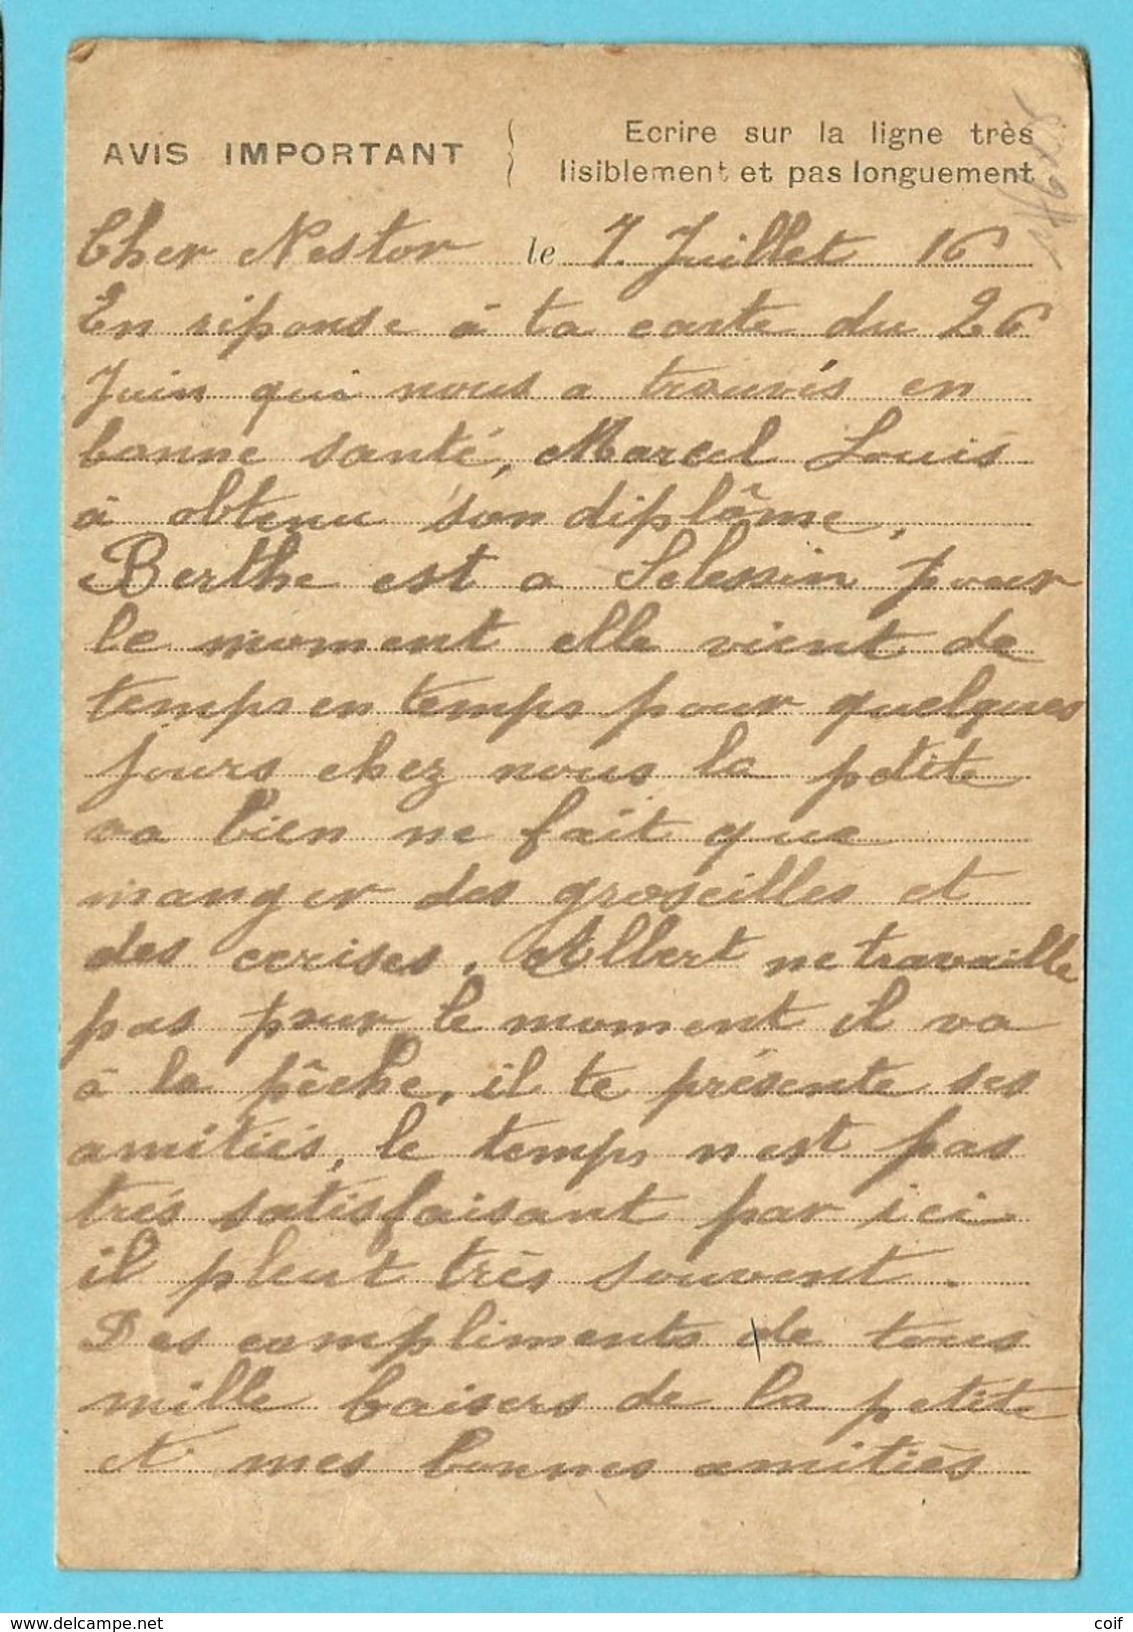 AVIS IMPORTANT
Ecrire sur la ligne très
lisiblement et pas longuement
Cher Nestor le 7. Juillet 16
En réponse à ta carte du 26
Juin qui nous a trouvés en
bonne santé, Marcel Louis
à obtenu son diplôme,
Berthe est a Sclessin pour
le moment elle vient de
temps en temps pour quelques
jours chez nous la petite
va bien ne fait que
manger des groseilles et
des cerises. Albert ne travaille
pas pour le moment il va
à la pêche, il te présente ses
amitiés, le temps n'est pas
très satisfaisant par ici
il pleut très souvent.
Des compliments de tous
mille baisers de la petite
et mes bonnes amitiés
www.delcampe.net
coif